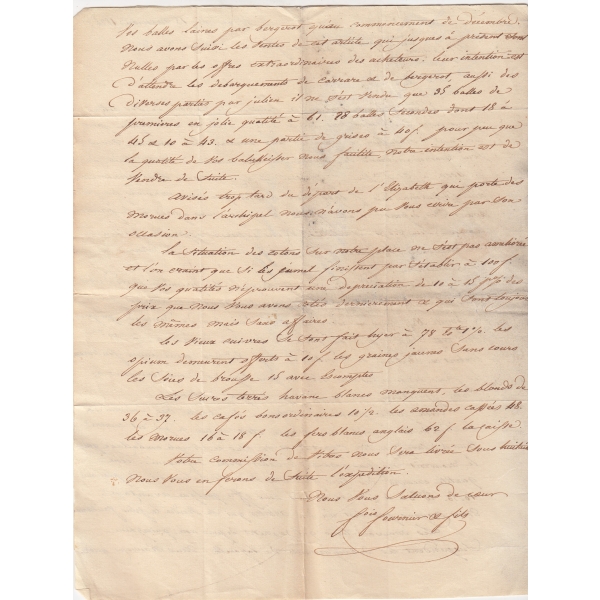 vos balles laines par bergeret qu'au commencement de décembre.
Nous avons suivi les ventes de cet article qui jusques à présent sont
nulles par les offres extraordinaires des acheteurs. leur intention est
d'attendre les debarquements de Carrare & de bergeret, aussi des
diverses parties par julien il ne s'est vendu que 35 balles de
premieres en jolie qualité à 61. 78 balles secondes dans 18 à
45 & 10 à 43. & une partie de grises à 40f. pour peu que
la qualité de vos nous facilite, notre intention est de
vendre de suite.
Avisés trop tard du départ de l'Elizabeth qui porte des
morues dans l'archipel nous n'avons pu vous écrire par son
occasion.
la situation des cotons sur notre place ne s'est pas ameliorée
et l'on craint que si les jumel finissent par s'établir à 100f.
que vos qualités n'éprouvent une depreciation de 10 à 15 p% des
prix que nous vous avons cotés dernierement & qui sont toujours
les mêmes mais sans affaires.
les vieux cuivres se sont fait hyer à 78 1%. les
opium demeurent offerts à 10f. les graines jaunes sans cours
les soies de brousse 15 avec escomptes.
Les sucres terrés havane blancs manquent, les blonds de
36 à 37. les cafés bons ordinaires 10½. les amandes cassées 48.
les morues 16 à 18f. les fers blancs anglais 62f la caisse.
Votre commission de nous sera livrée sous huitaine
nous vous en ferons de suite l'expedition.
Nous vous saluons de cœur
fournier & fils